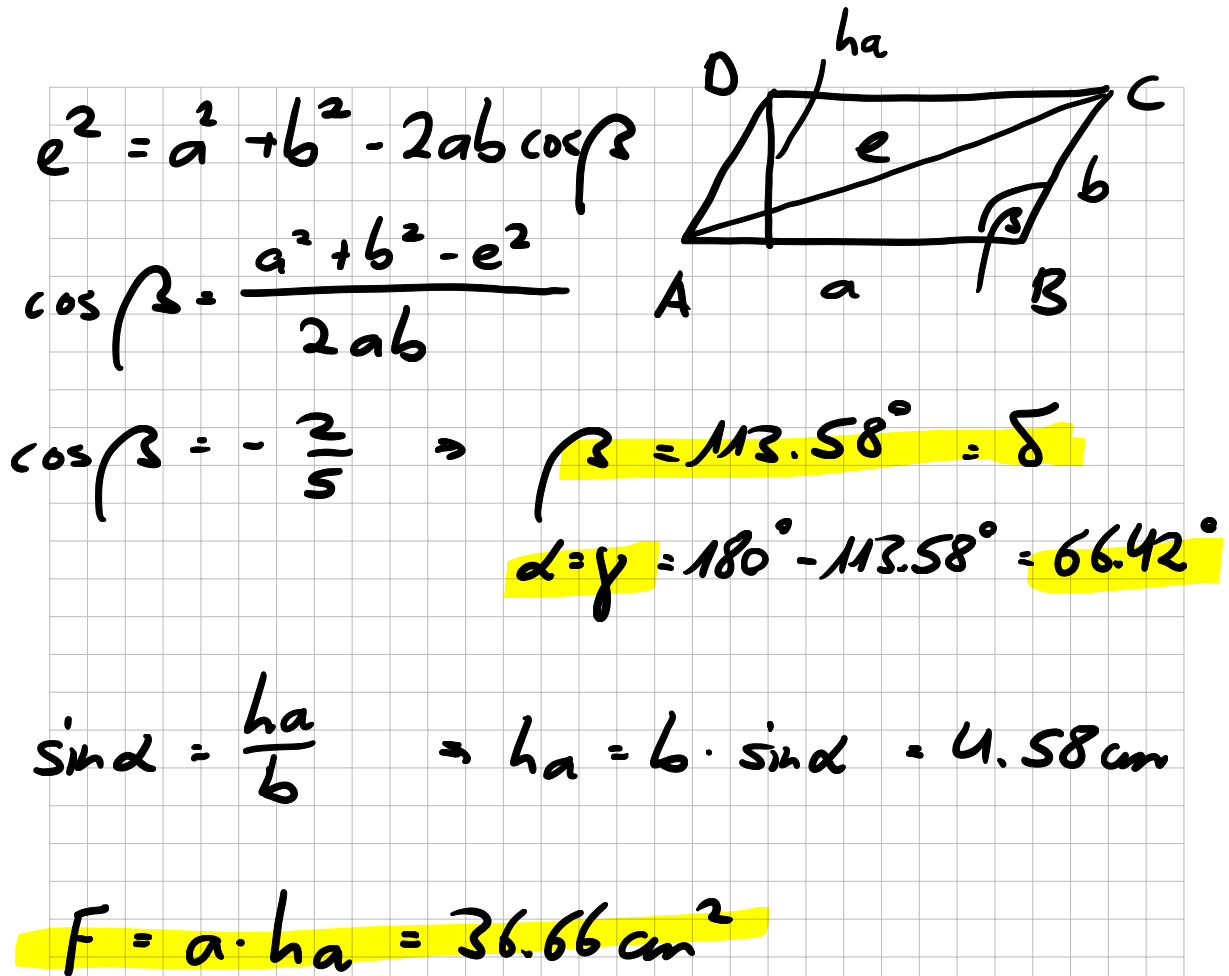 e² = a² + b² - 2ab cos β
cos β = (a² + b² - e²) / 2ab
D ha C
e
b
β
A a B
cos β = - 2/5 ⇒ β = 113.58° = δ
α = γ = 180° - 113.58° = 66.42°
sin α = ha/b ⇒ ha = b · sin α = 4.58 cm
F = a · ha = 36.66 cm²